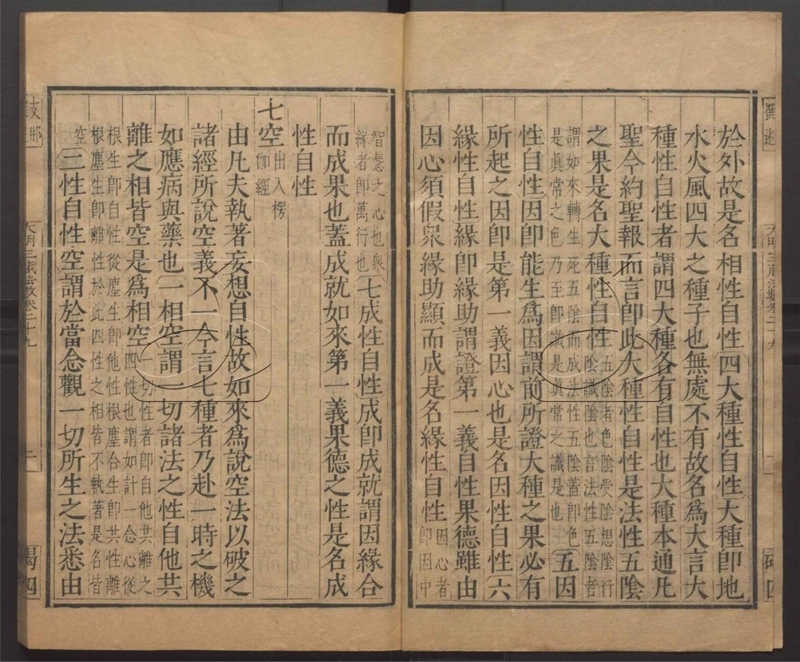 於外故是名相性自性四大種性自性大種即地
水火風四大之種子也無處不有故名為大言大
種性自性者謂四大種各有自性也大種本通凡
聖今約聖報而言即此大種性自性是法性五陰
之果是名大種性自性五陰者色陰受陰想陰行
陰識陰也言法性五陰者
謂如來轉生死五陰而成法性五陰蓋即色
是眞常之色乃至即識是眞常之識是也五因
性自性因即能生為因謂前所證大種之果必有
所起之因即是第一義因心也是名因性自性六
緣性自性緣即緣助謂證第一義自性果德雖由
因心須假衆緣助顯而成是名緣性自性因心者
即因中
智慧之心也衆
緣者即萬行也七成性自性成即成就謂因緣合
而成果也蓋成就如來第一義果德之性是名成
性自性
七空出入楞
伽經
由凡夫執著妄想自性故如來為說空法以破之
諸經所說空義不一今言七種者乃赴一時之機
如應病與藥也一相空謂一切諸法之性自他共
離之相皆空是為相空一切性者即自他共離之
四性也謂如計一念心從
根生即自性從塵生即他性根塵合生即共性離
根塵生即離性於此四性之相皆不執著是名皆
空二性自性空謂於當念觀一切所生之法悉由
大明三藏法數卷二十九
二
碣四